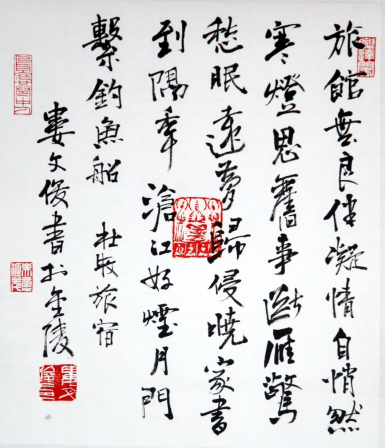 旅館無良伴凝情自悄然
寒燈思舊事断雁驚
愁眠遠夢歸侵曉家書
到隔年滄江好煙月門
繫釣魚船 杜牧旅宿
婁文俊書於金陵